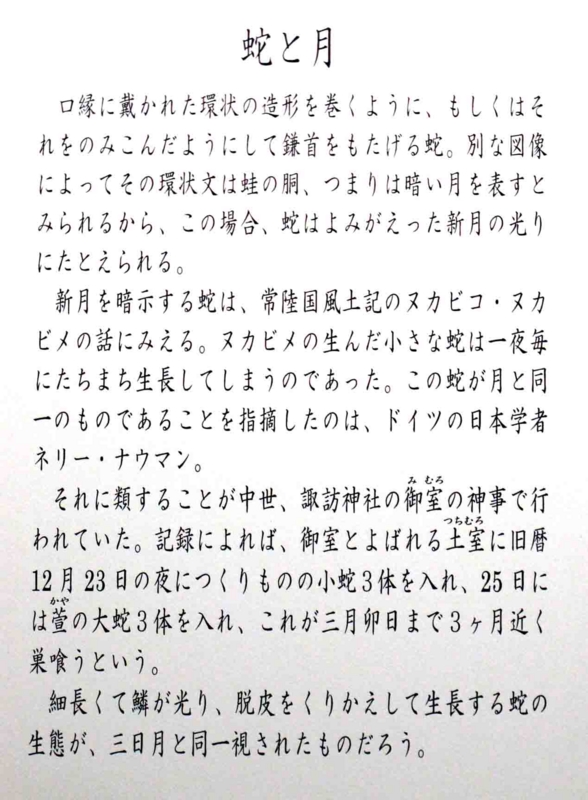 蛇と月
口縁に戴かれた環状の造形を巻くように、もしくはそ
れをのみこんだようにして鎌首をもたげる蛇。別な図像
によってその環状文は蛙の胴、つまりは暗い月を表すと
みられるから、この場合、蛇はよみがえった新月の光り
にたとえられる。
新月を暗示する蛇は、常陸国風土記のヌカビコ・ヌカ
ビメの話にみえる。ヌカビメの生んだ小さな蛇は一夜毎
にたちまち生長してしまうのであった。この蛇が月と同
一のものであることを指摘したのは、ドイツの日本学者
ネリー・ナウマン。
みむろ
それに類することが中世、諏訪神社の御室の神事で行
つちむろ
われていた。記録によれば、御室とよばれる土室に旧暦
12月23日の夜につくりものの小蛇3体を入れ、25日に
かや
は萱の大蛇3体を入れ、これが三月卯日まで3ヶ月近く
巣喰うという。
細長くて鱗が光り、脱皮をくりかえして生長する蛇の
生態が、三日月と同一視されたものだろう。